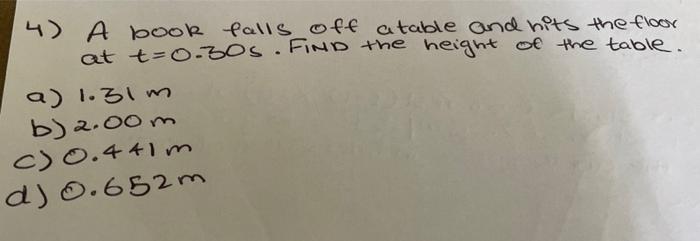 4) A book falls off a table and hits the floor
at t=0.30s. FIND the height of the table.
a) 1.31 m
b) 2.00 m
c) 0.441 m
d) 0.652 m